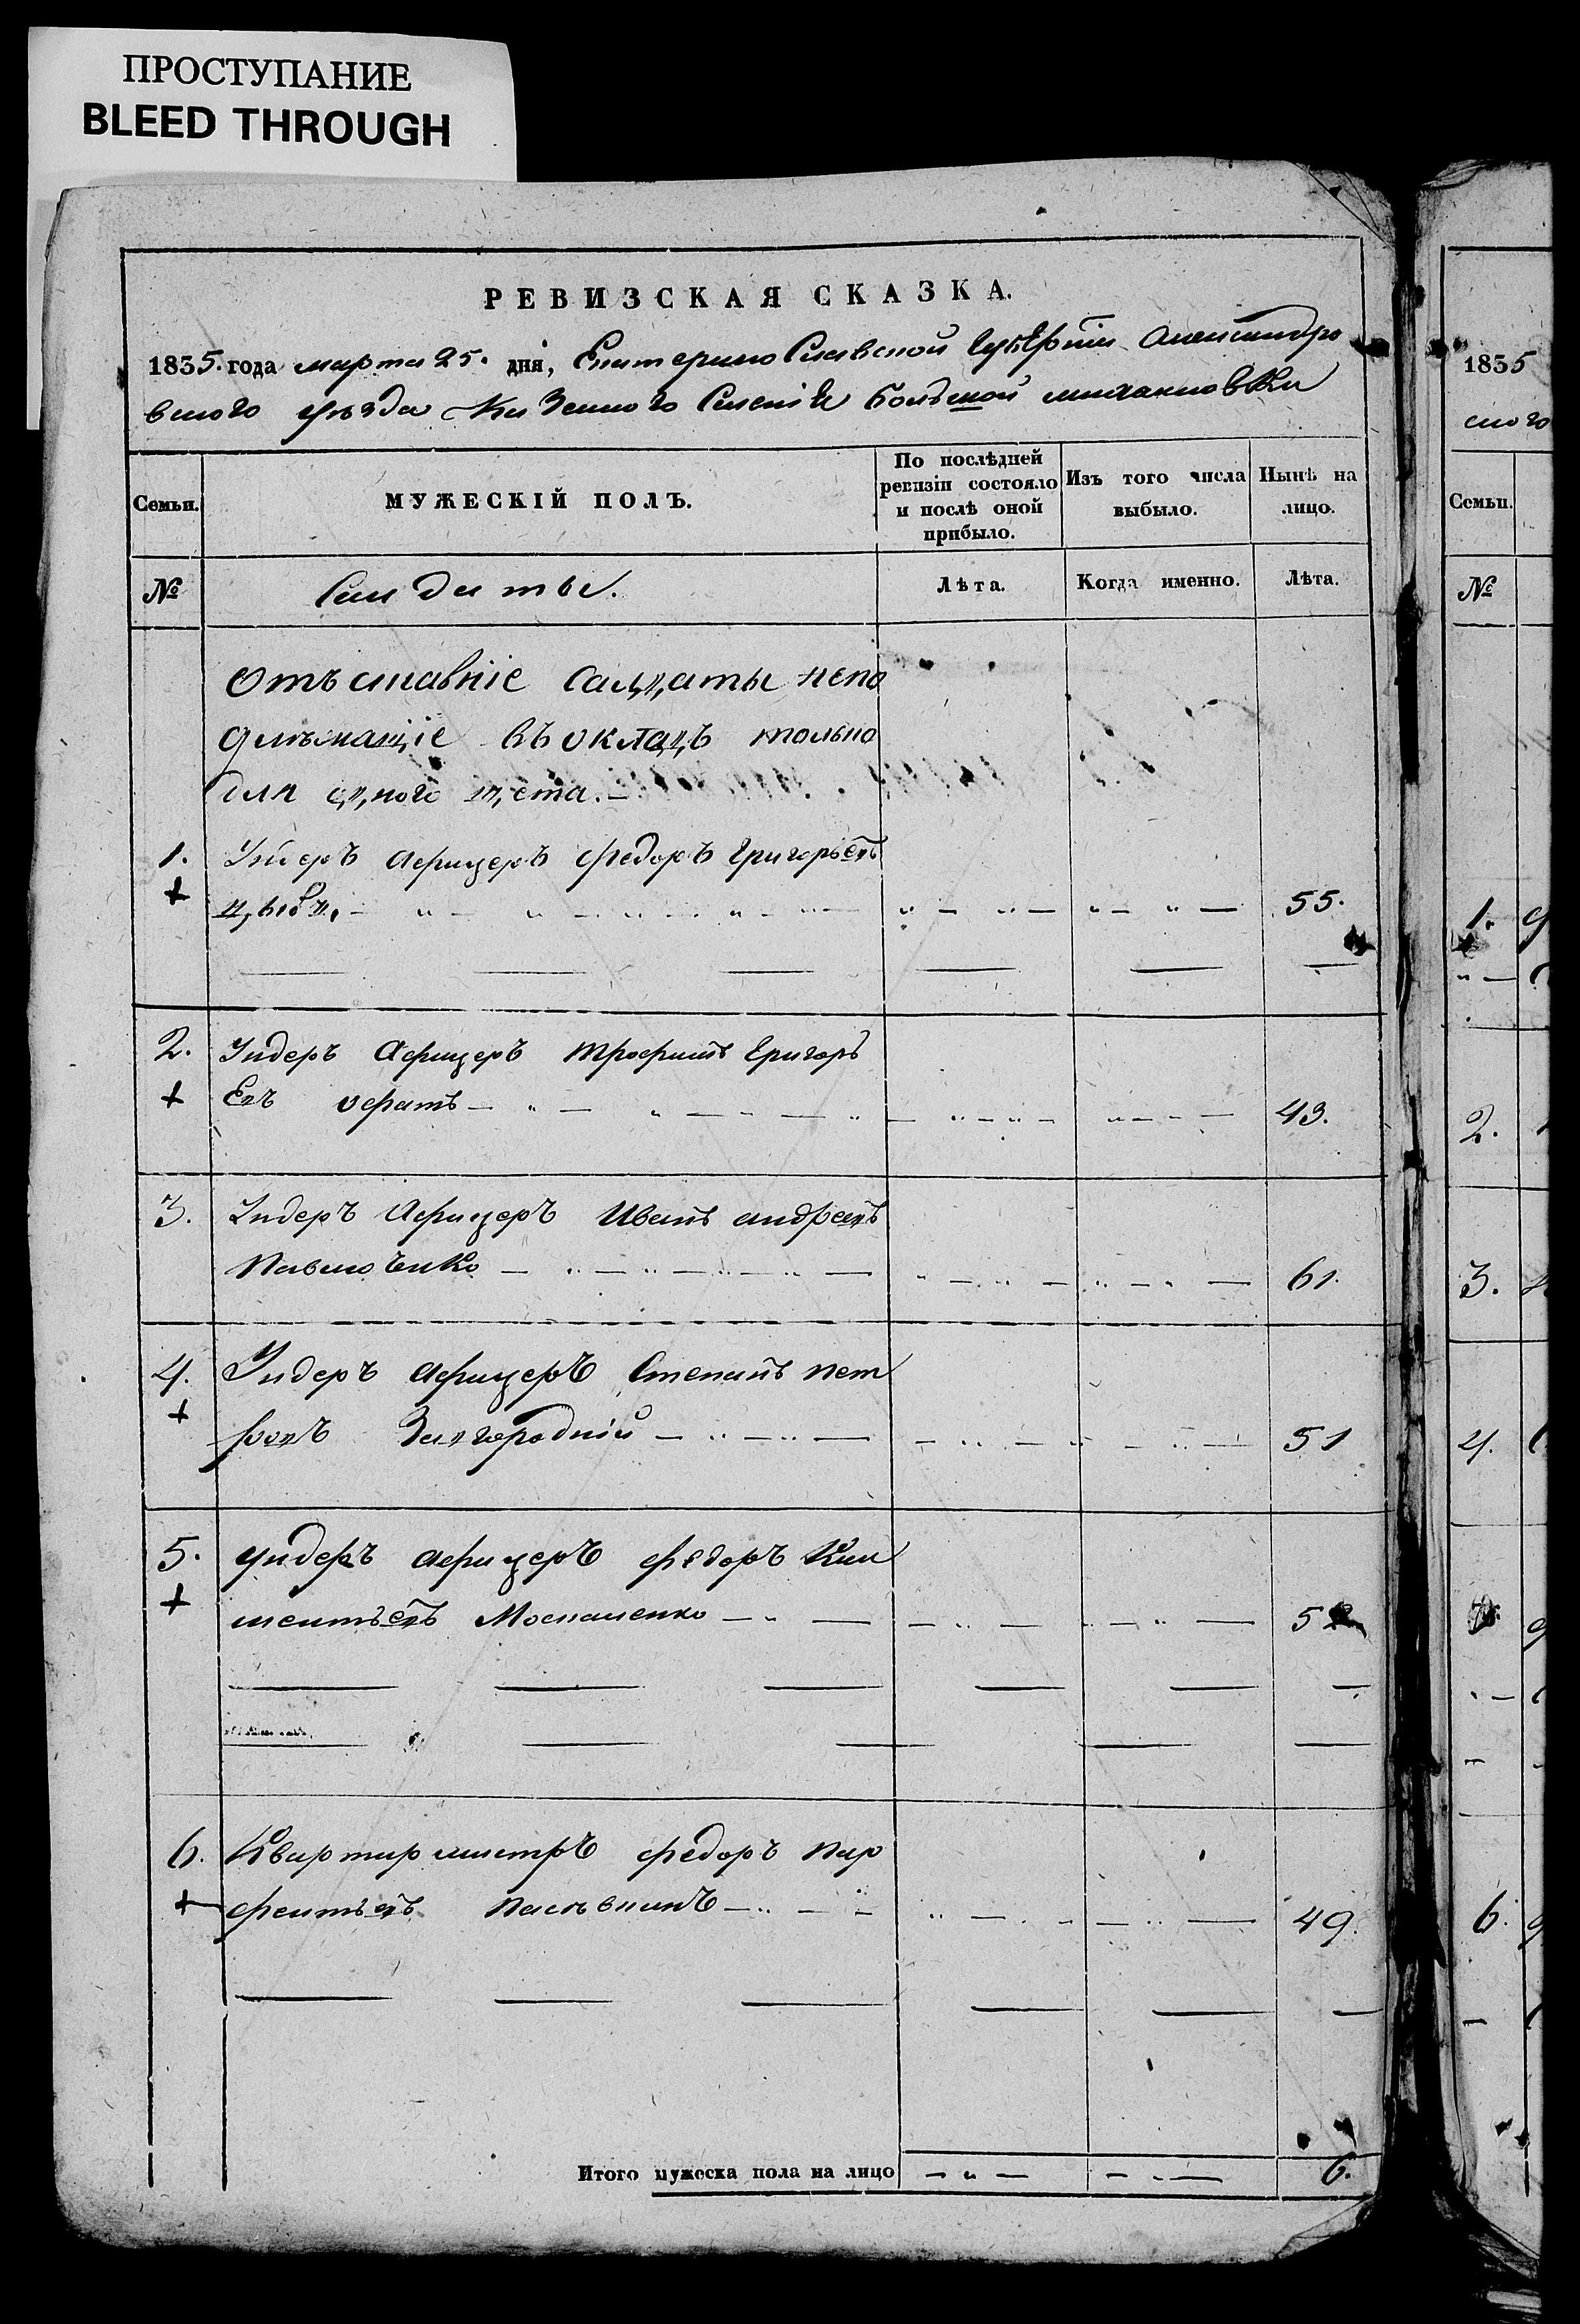 ПРОСТУПАНИЕ
BLEED THROUGH
РЕВИЗСКАЯ СКАЗКА.
1835. года марта 25. дня, Екатерино Славской Губерніи Александро
вского уѣзда Казенного Селенія Большой михаиловки
Семьи.
МУЖЕСКІЙ ПОЛЪ.
По послѣдней ревизіи состояло и послѣ оной прибыло.
Изъ того числа выбыло.
Нынѣ на лицо.
№
Салдаты.
Лѣта.
Когда именно.
Лѣта.
Отъставніе Салдаты непо
длѣжащіе въ окладъ только
для одного щета.
1. Ундеръ Афицеръ Федоръ Григорьевъ
55.
2. Ундеръ Афицеръ Трофимъ Григорь
Евъ 43.
3. Ундеръ Афицеръ Иванъ андреевъ
Павлоченко 61.
4. Ундеръ Афицеръ Степанъ пет
ровъ Загородній 51
5. Ундеръ Афицеръ Федоръ Кли
ментьевъ 5
6. Квартирмистръ Федоръ пар
фентьевъ 49.
Итого мужеска пола на лицо 6.
1835
ского
Семьи.
№
1.
2.
3.
4.
6.